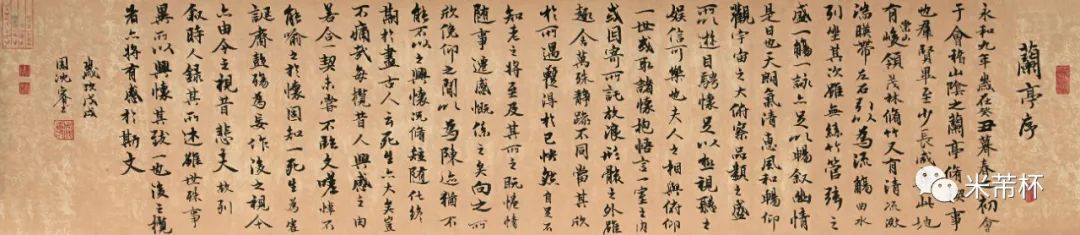 蘭亭序
永和九年歲在癸丑暮春之初會
于會稽山陰之蘭亭脩禊事
也群賢畢至少長咸集此地
有崇山峻領茂林脩竹又有清流激
湍暎帶左右引以為流觴曲水
列坐其次雖無絲竹管弦之
盛一觴一詠亦足以暢叙幽情
是日也天朗氣清惠風和暢仰
觀宇宙之大俯察品類之盛
所以遊目騁懷足以極視聽之
娛信可樂也夫人之相與俯仰
一世或取諸懷抱悟言一室之內
或因寄所託放浪形骸之外雖
趣舍萬殊靜躁不同當其欣
於所遇蹔得於己怏然自足不
知老之將至及其所之既惓情
隨事遷感慨係之矣向之所
欣俛仰之間以為陳迹猶不
能不以之興懷況脩短隨化終
期於盡古人云死生亦大矣豈
不痛哉每攬昔人興感之由
若合一契未嘗不臨文嗟悼不
能喻之於懷固知一死生為虛
誕齊彭殤為妄作後之視今
亦由今之視昔悲夫故列
叙時人錄其所述雖世殊事
異所以興懷其致一也後之攬
者亦將有感於斯文
歲次戊戌
米芾杯